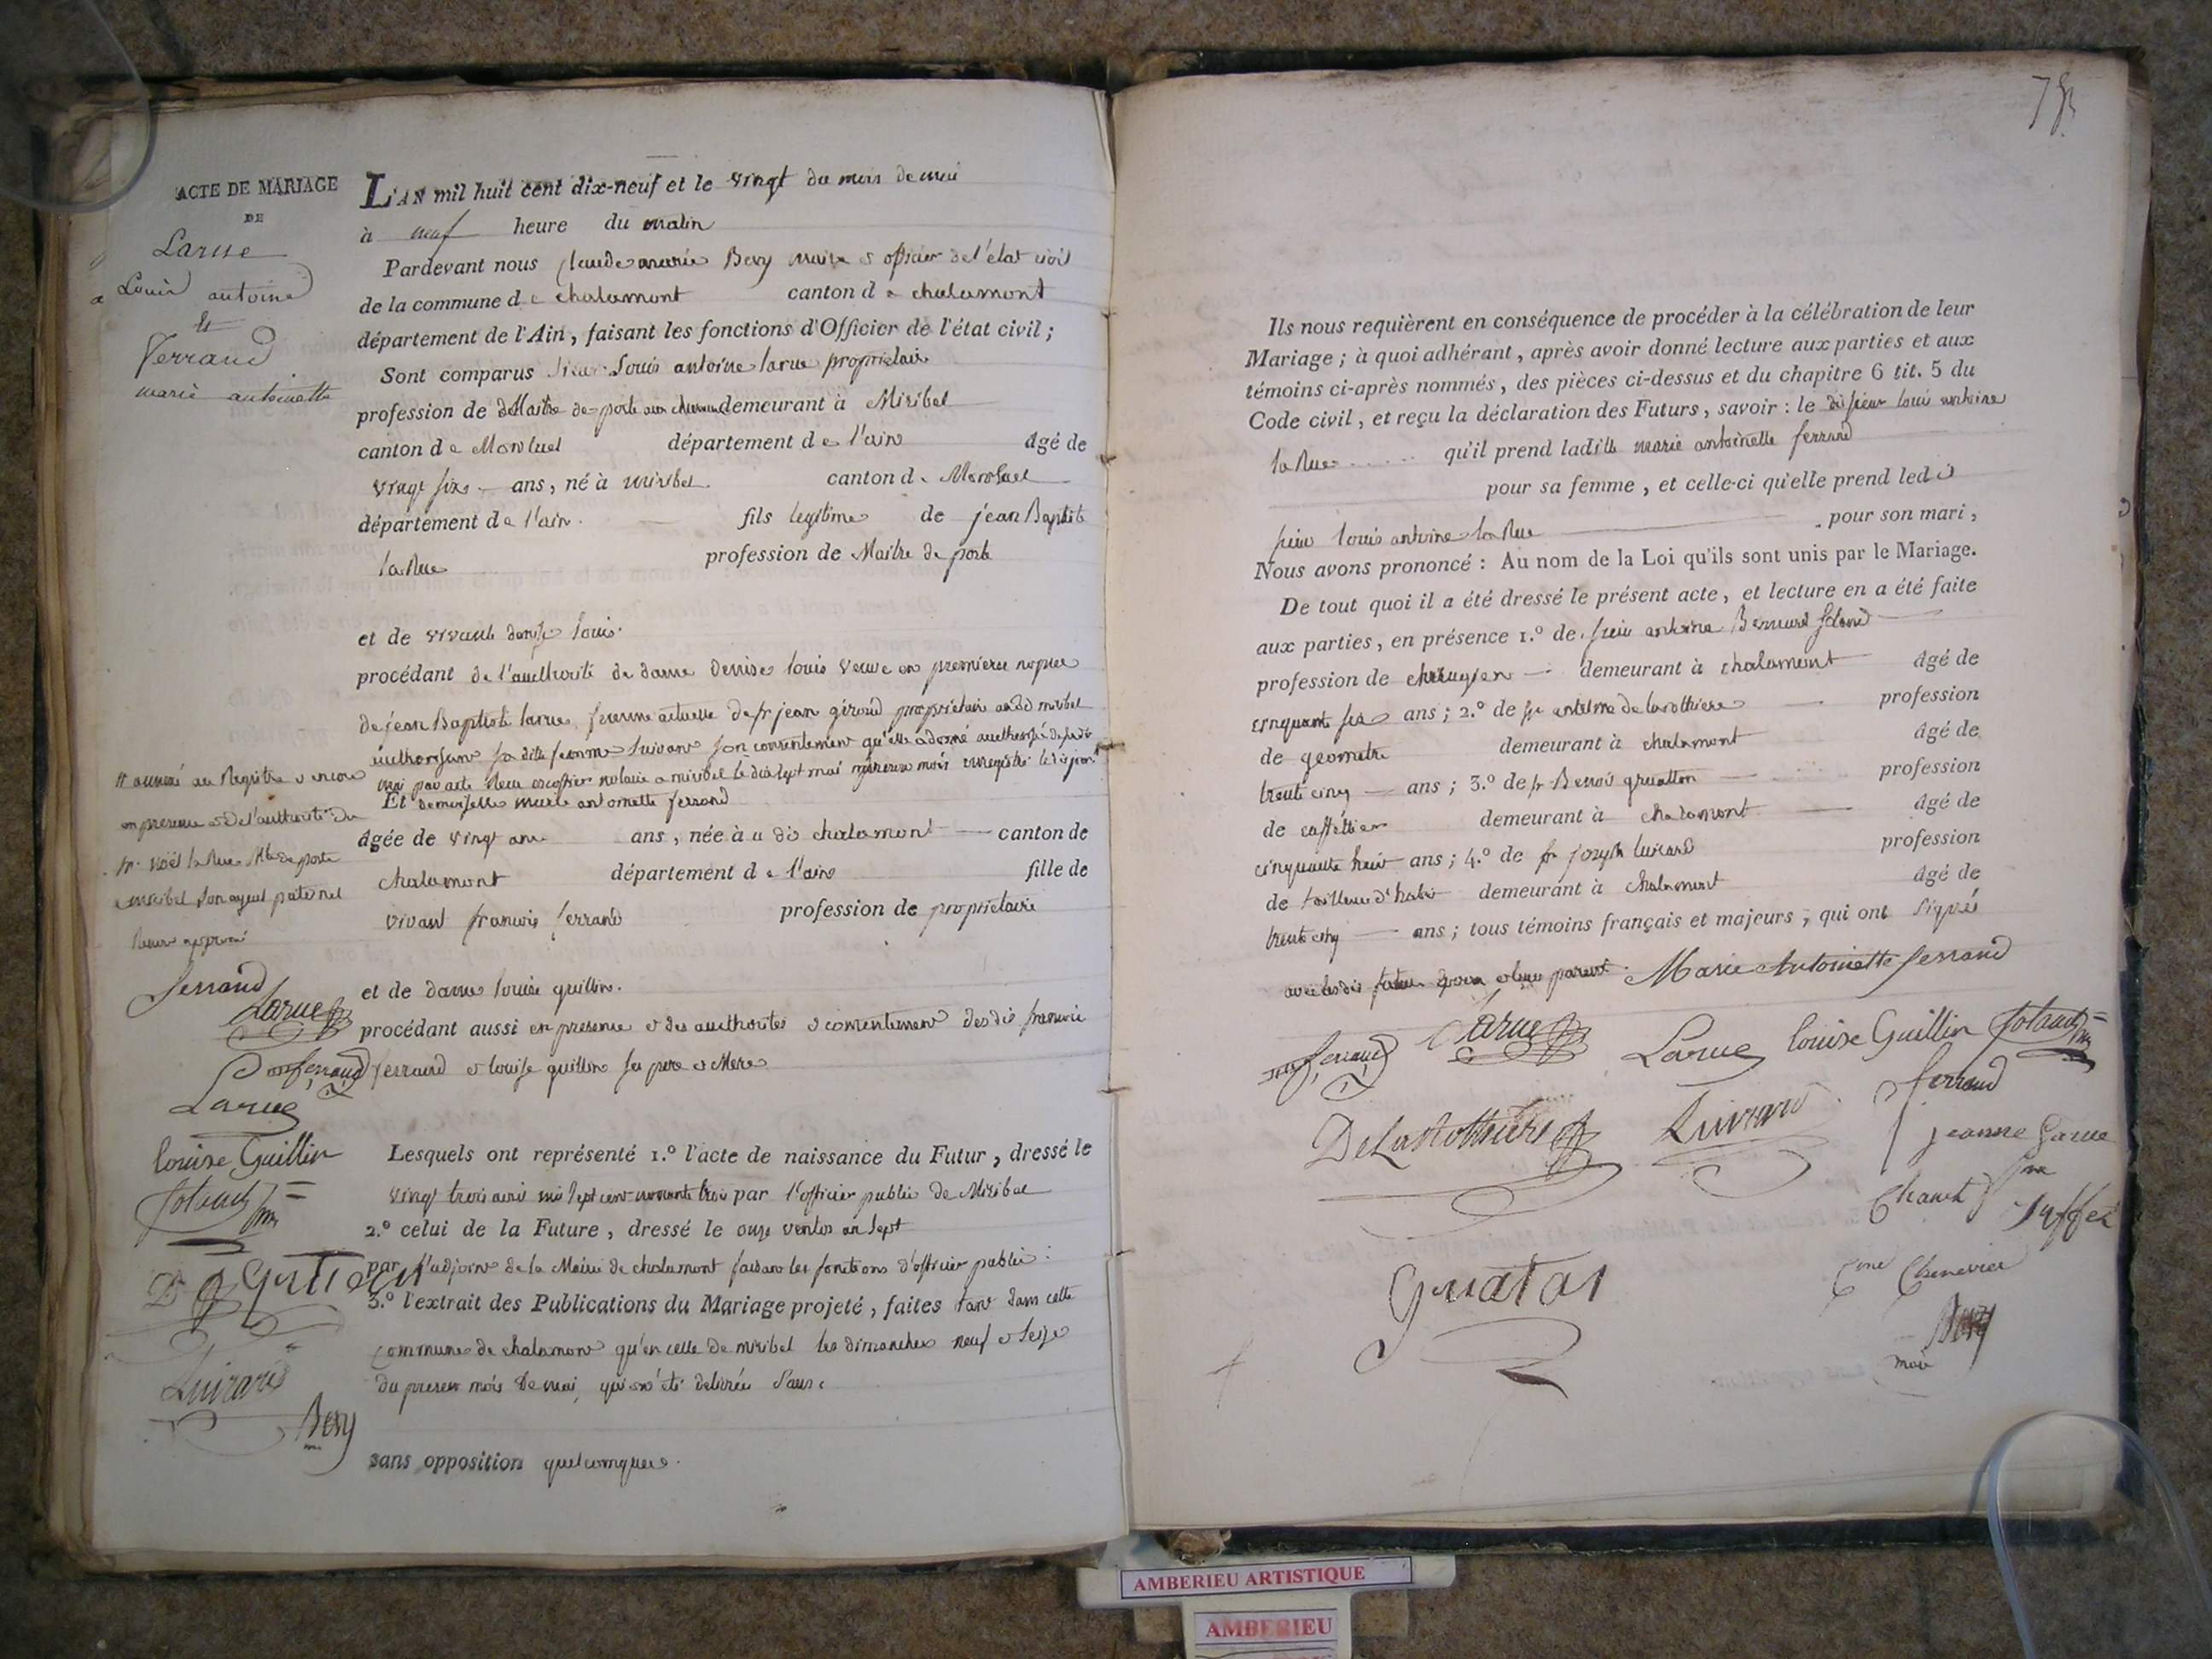 ACTE DE MARIAGE
DE
Larue
Louis antoine
Et
Ferrand
marie antoinette
L'AN mil huit cent dix-neuf et le vingt du mois de mai
à neuf heure du matin
Pardevant nous Claude marie Bery maire & officier de l'état civil
de la commune de chalamont canton de chalamont
département de l'Ain, faisant les fonctions d'Officier de l'état civil;
Sont comparus sieur Louis antoine larue proprietaire
profession de Maitre de poste aux chevaux demeurant à Miribel
canton de Monluel département de l'ain âgé de
vingt six ans, né à miribel canton de Monluel
département de l'ain fils legitime de jean Baptiste
la Rue profession de Maitre de poste
et de vivante denise louis
procédant de l'authorité de dame denise louis veuve en premieres nopces
de jean Baptiste larue, femme actuelle de sr jean géroud propriétaire audit miribel
authorisant sa ditte femme suivant son consentement qu'elle a donné
mai par acte Reçu escoffier notaire a miribel le dix sept mai enregistré le dit jour
Et demoiselle marie antoinette ferrand
âgée de vingt ans ans, née à u dit chalamont canton de
chalamont département de l'ain fille de
vivant francois ferrand profession de propriétaire
et de dame louise guillin.
procédant aussi en presence & des authorités & consentement desdits francois
ferrand & louise guillin ses pere & Mere
Lesquels ont représenté 1.º l'acte de naissance du Futur, dressé le
vingt trois avril mil sept cent nonante trois par l'officier public de Miribel
2.º celui de la Future, dressé le onze ventos an sept
par l'adjoint de la Mairie de chalamont faisant les fonctions d'officier public:
3.º l'extrait des Publications du Mariage projeté, faites tant dans cette
commune de chalamont qu'en celle de miribel les dimanches neuf & seize
du present mois de mai, qui été delivrée
sans opposition quelconque.
annexé au Registre & encore
en presence & de l'authorité du
sr. noël la Rue Mtre de poste
a miribel son ayeul paternel
Renvoi approuvé
ferrand
Larue
ferrand
Larue
Louise Guillin
Soland
Luivard
Bery
Ils nous requièrent en conséquence de procéder à la célébration de leur
Mariage; à quoi adhérant, après avoir donné lecture aux parties et aux
témoins ci-après nommés, des pièces ci-dessus et du chapitre 6 tit. 5 du
Code civil, et reçu la déclaration des Futurs, savoir: le dit sieur louis antoine
la Rue qu'il prend ladille marie antoinette ferrand
pour sa femme, et celle-ci qu'elle prend ledit
sieur louis antoine la Rue pour son mari,
Nous avons prononcé: Au nom de la Loi qu'ils sont unis par le Mariage.
De tout quoi il a été dressé le présent acte, et lecture en a été faite
aux parties, en présence 1.º de sieur antoine Bernard Soland
profession de chirurgien demeurant à chalamont âgé de
cinquante six ans; 2.º de sr antelme de larothiere profession
de geometre demeurant à chalamont âgé de
trente cinq ans; 3.º de sr Benoit gruatton profession
de caffétier demeurant à chalamont âgé de
cinquante huit ans; 4.º de sr joseph luivard profession
de tailleur d'habit demeurant à chalamont âgé de
trente cinq ans; tous témoins français et majeurs, qui ont signés
avec lesdits futurs époux & leurs parents. Marie Antoinette ferrand
ferrand Larue Larue Louise Guillin Soland
ferrand
DeLaRothiere Luivard jeanne Larue
Chenevier
Bery
maire
AMBERIEU ARTISTIQUE
AMBERIEU